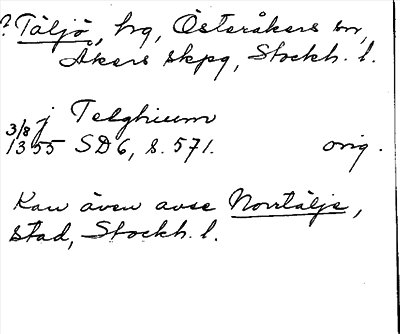 ? Täljö, hg, Österåkers sn,
Åkers skpg, Stockh. l.
j Telghium
3/8 1355 SD 6, s. 571. orig.
Kan även avse Norrtälje,
stad, Stockh. l.